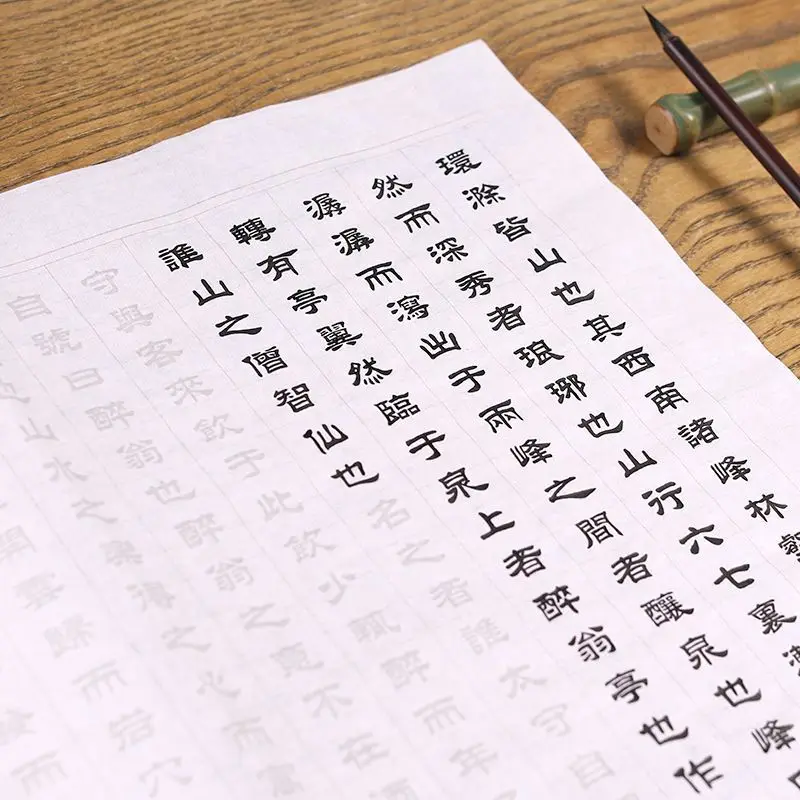 環滁皆山也其西南諸峰林壑
然而深秀者琅琊也山行六七裏
潺潺而瀉出于兩峰之間者釀泉也峰
轉有亭翼然臨于泉上者醉翁亭也作
誰山之僧智仙也名之者誰太守自
守與客來飲于此飲少輒醉而年
自號曰醉翁也醉翁之意不在酒
山水之樂得之心而寓
開雲歸而岩穴
而